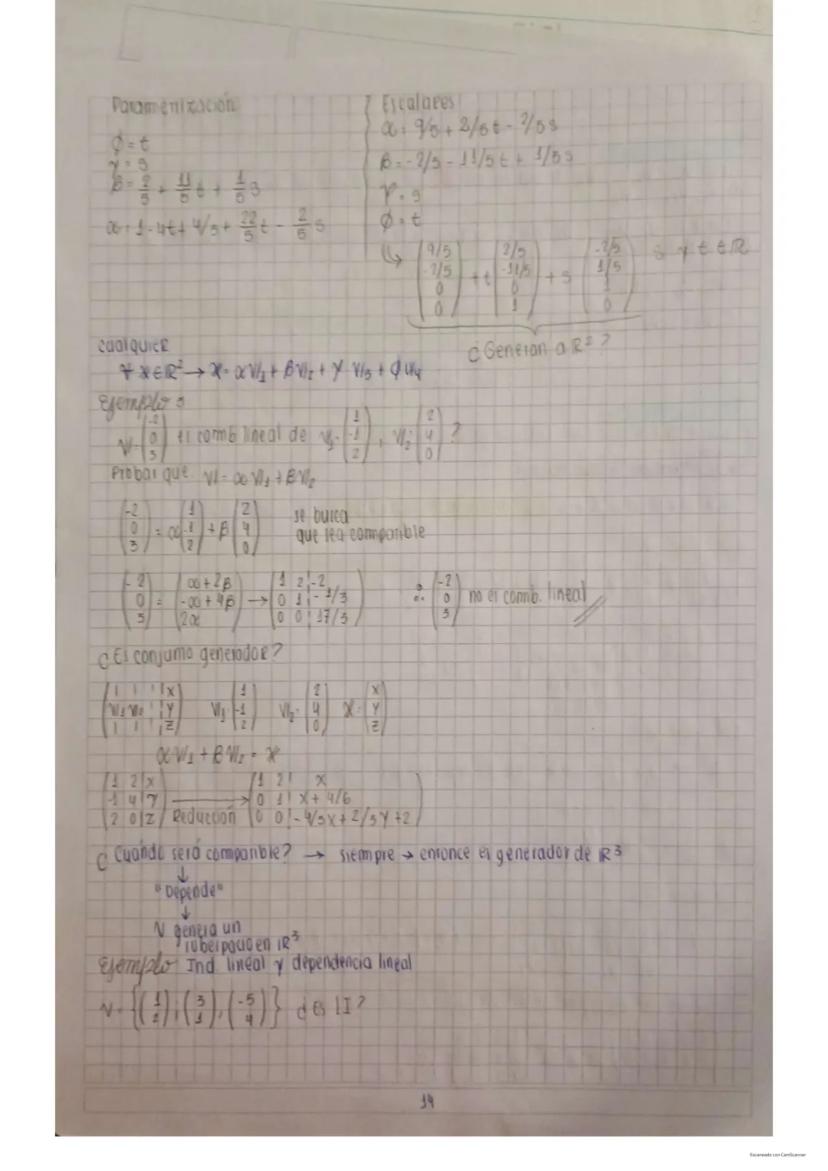 Paramenización
ϕ = t
γ = s
β = 2/5 + 11/5 t + 1/5 s
α = 1 - 4t + 4/5 + 22/5 t - 2/5 s
Escalares
α = 9/5 + 2/5 t - 2/5 s
β = -2/5 - 11/5 t + 1/5 s
γ = s
ϕ = t
↳ (9/5 -2/5 0 0) + t (2/5 -11/5 0 1) + s (-2/5 1/5 1 0) s y t ∈ ℝ
¿Generan a ℝ²?
cualquier
∀ x ∈ ℝ² → x = αv₁ + βv₂ + γ v₃ + ϕ v₄
Ejemplo
v = (-2 0 3) es comb lineal de v₁ = (1 -1 2), v₂ = (2 4 0) ?
Probar que v = αv₁ + βv₂
(-2 0 3) = α(1 -1 2) + β(2 4 0) se busca
que sea compatible
(-2 0 3) = (α+2β -α+4β 2α) → (1 2 | -2 0 1 | -1/3 0 0 | 17/3) ∴ (-2 0 3) no es comb. lineal
¿Es conjunto generador?
(| | | | x v₁ v₂ | | y | | | | z) v₁ = (1 -1 2) v₂ = (2 4 0) x = (x y z)
αv₁ + βv₂ = x
(1 2 | x -1 4 | y 2 0 | z) Reducción → (1 2 | x 0 1 | x + 4/6 0 0 | -4/3x + 2/3y + z)
¿Cuándo será compatible? → siempre → entonce es generador de ℝ³
↓
"Depende"
↓
N genera un
subespacio en ℝ³
Ejemplo Ind. lineal y dependencia lineal
N = {(1 2), (3 1), (-5 4)} ¿es LI?
14
Escaneado con CamScanner